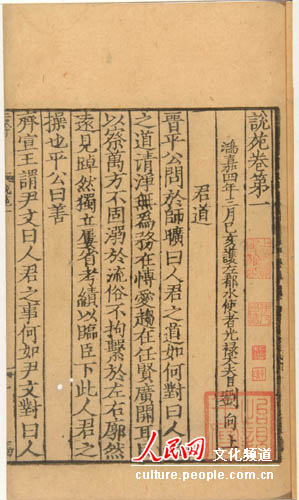 說苑卷第一
鴻嘉四年三月己亥護左都水使者光祿大夫臣劉向上
君道
晉平公問於師曠曰人君之道如何對曰人君
之道清淨無為務在愽愛趨在任賢廣開耳目
以察萬方不固溺於流俗不拘繫於左右廓然
遠見踔然獨立屢省考績以臨臣下此人君之
操也平公曰善
齊宣王謂尹文曰人君之事何如尹文對曰人
人民网 文化频道
culture.people.com.cn